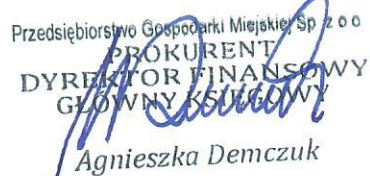 Przedsiębiorstwo Gospodarki Miejskiej Sp. z o o
PROKURENT
DYREKTOR FINANSOWY
GŁÓWNY KSIĘGOWY
Agnieszka Demczuk